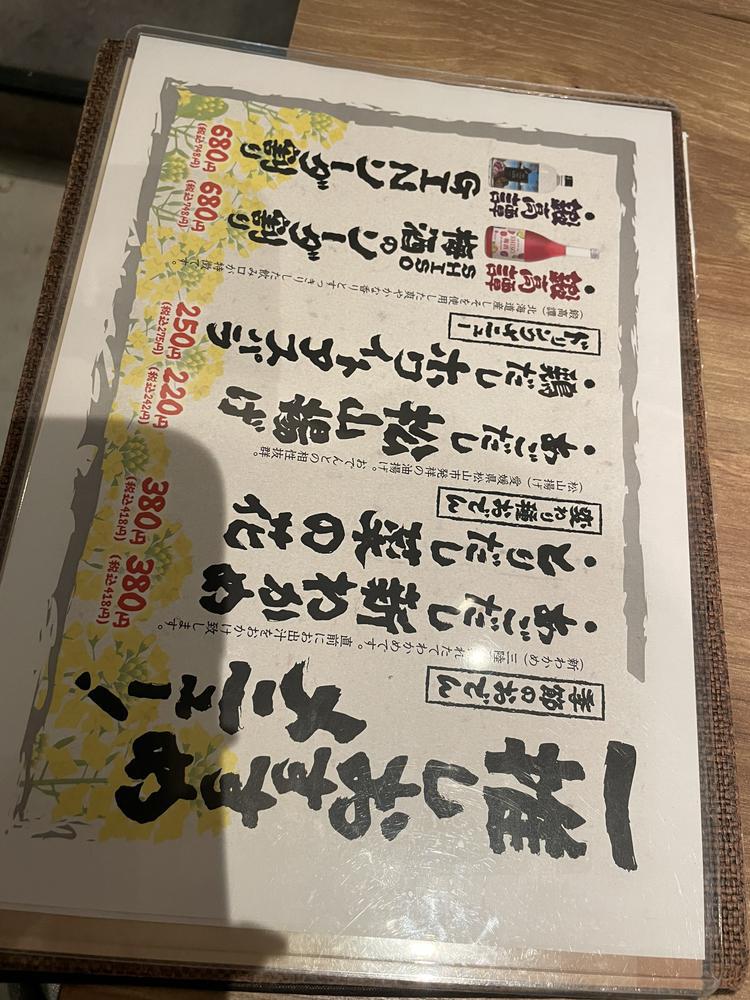 一推しおすすめ
メニュー！
季節のおでん
(新わかめ)三陸
れたてわかめです。直前にお出汁をおかけ致します。
・あごだし 新わかめ
380円
(税込418円)
・とりだし 菜の花
380円
(税込418円)
変わり種おでん
(松山揚げ)愛媛県松山市発祥の油揚げ。おでんとの相性抜群。
・あごだし 松山揚げ
220円
(税込242円)
・鶏だし ホワイトアスパラ
250円
(税込275円)
ドリンクメニュー
(鍛高譚)北海道産しそを使用した爽やかな香りとすっきりした飲み口が特徴です。
・鍛高譚 梅酒のソーダ割り
SHISO
680円
(税込748円)
・鍛高譚 GINソーダ割り
680円
(税込748円)